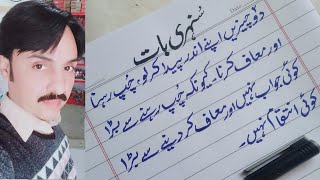 سنہری بات
دو چیزیں اپنے اندر پیدا کر لو، چپ رہنا
اور معاف کرنا۔ کیونکہ چپ رہنے سے بڑا
کوئی جواب نہیں اور معاف کر دینے سے بڑا
کوئی انتقام نہیں۔